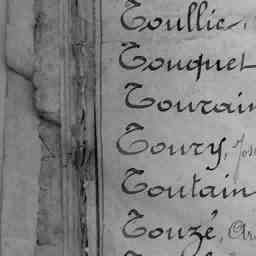 Toullic,
Touquet
Tourain
Toury, Jos
Toutain
Touzé, Ar